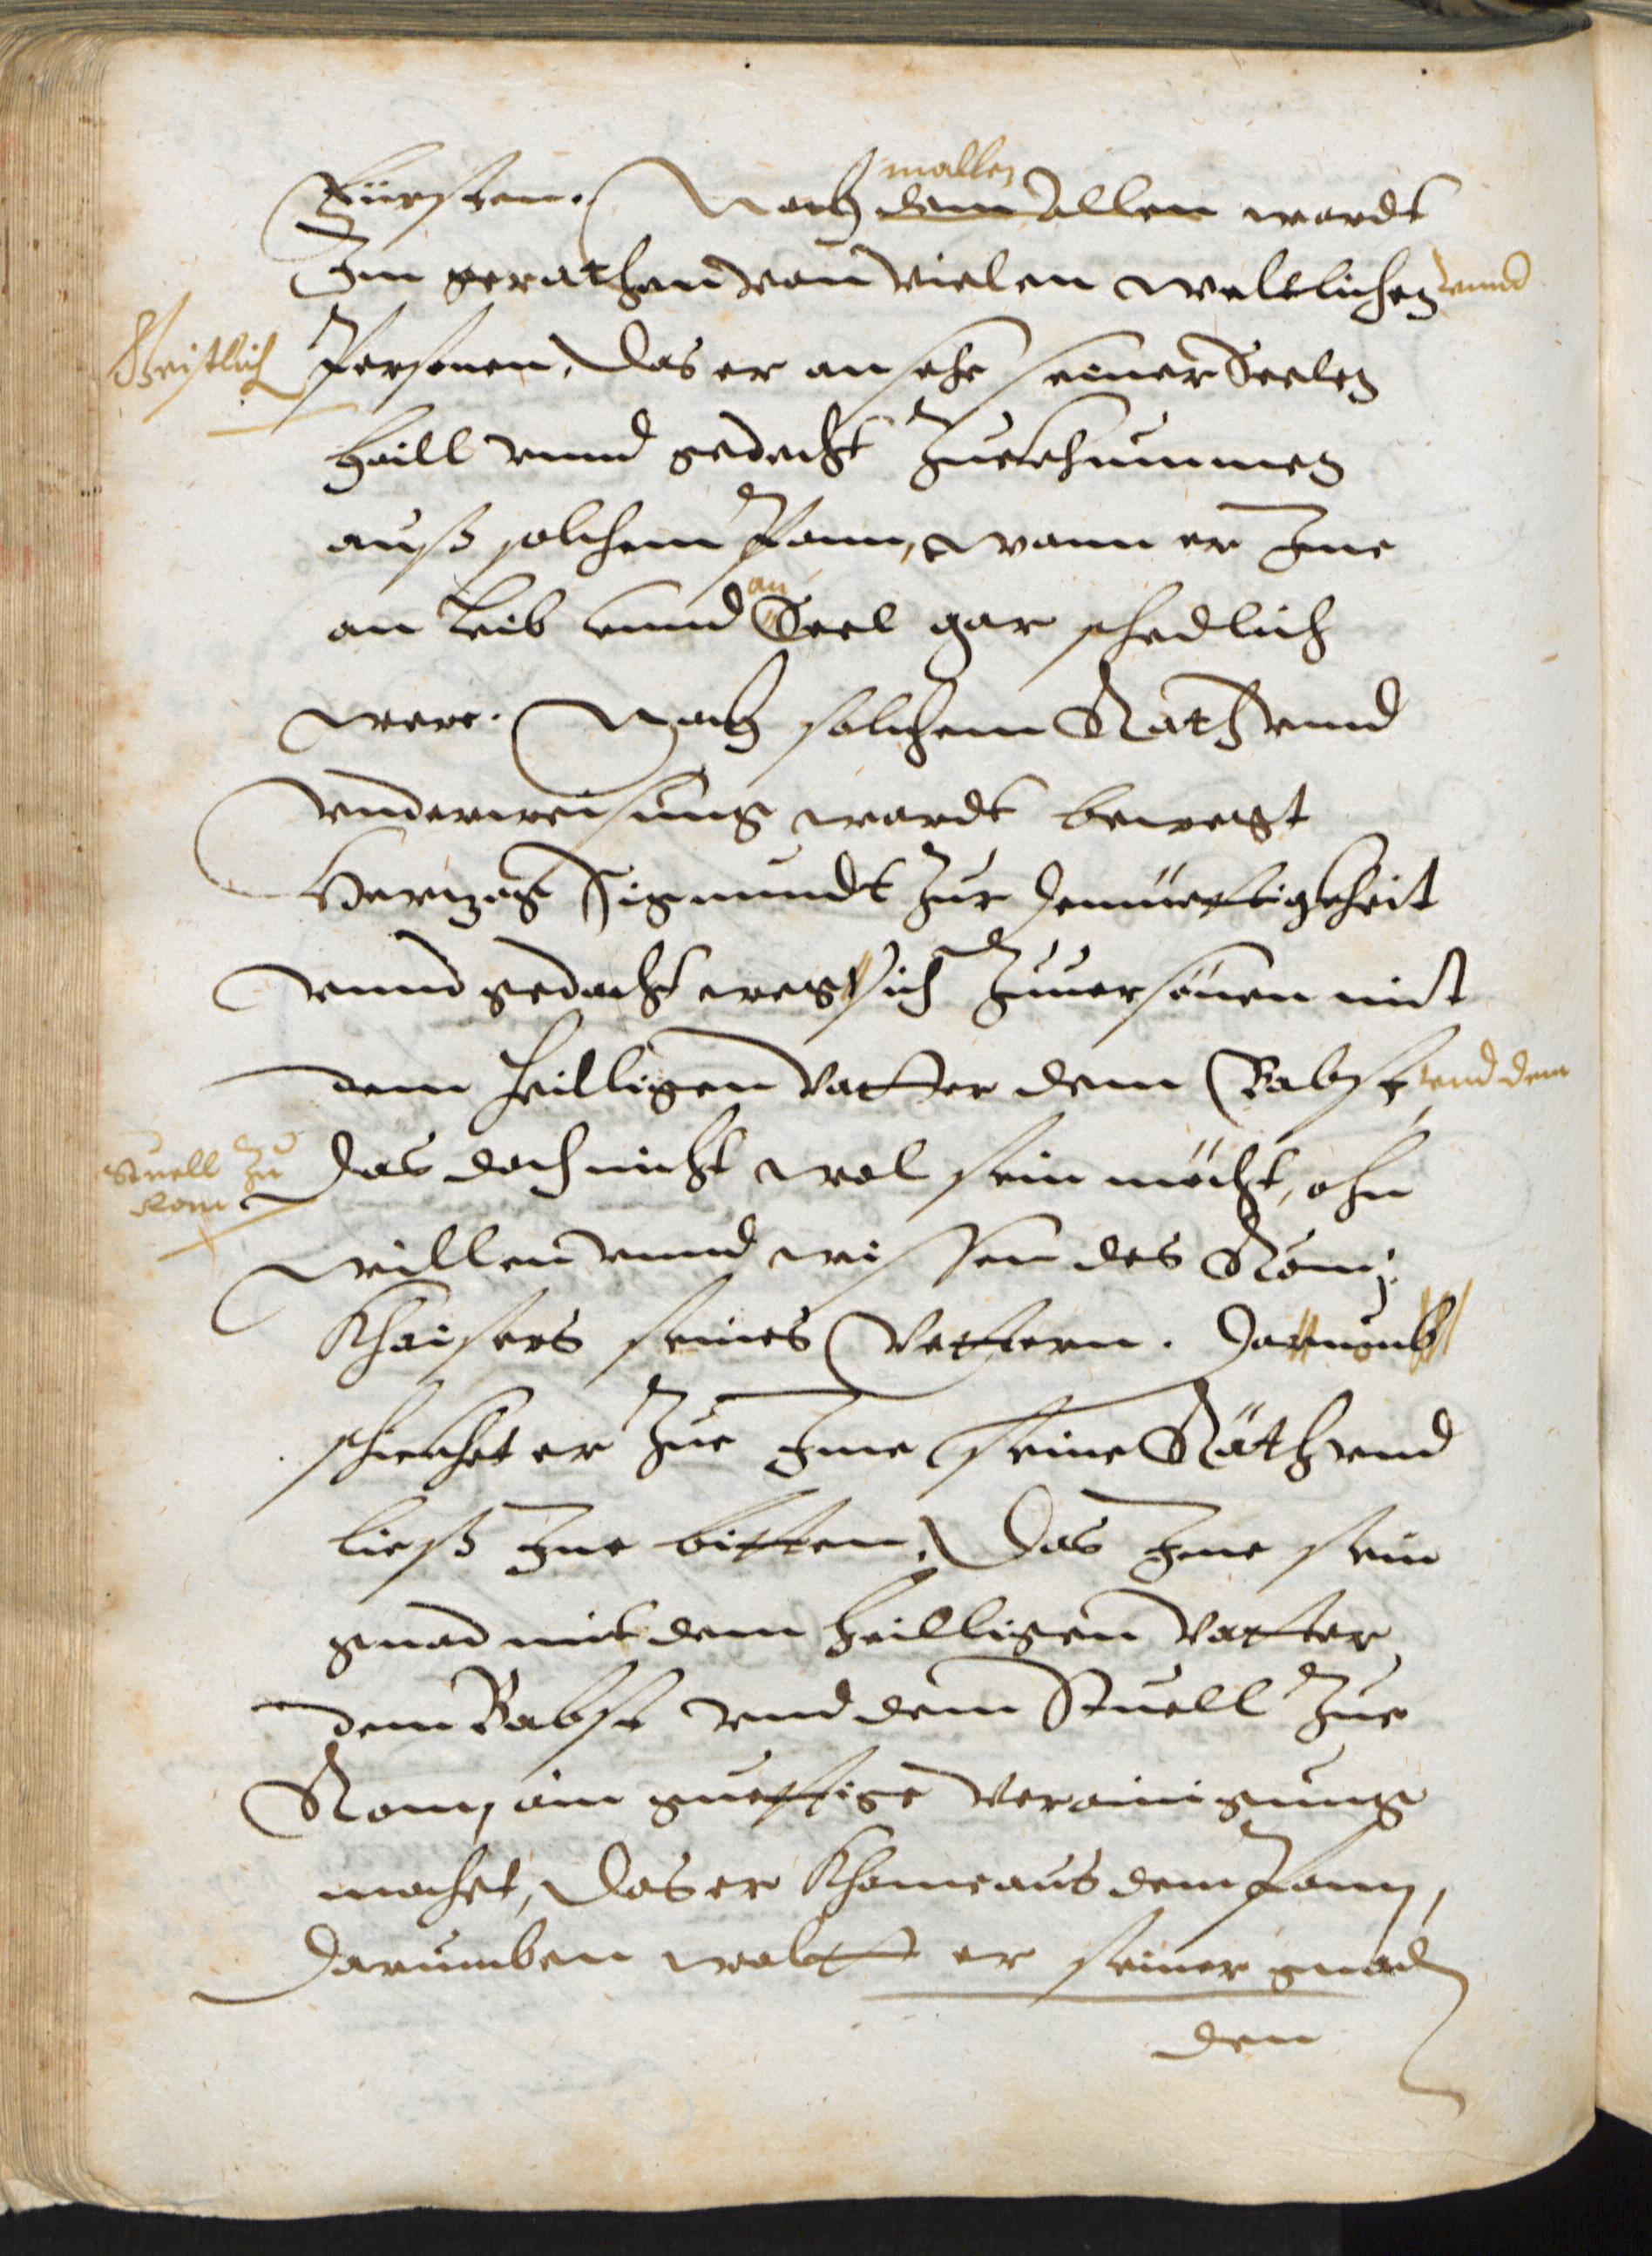 mallen
Fürsten. Nach dem allen wardt
Im gerathen von vielen weltlichen vnnd
Geistlich Personen, das er ansehe seiner Seelen
Haill vnnd gedecht Zuekhummen
auß solchem Pann, wann er Ime
an
an Leib vnnd Seel gar schedlich
were. Nach solchem Rath vnnd
vnderweisung wardt bewegt
Hertzog Sigmundt Zur demüettigkheit
vnnd gedacht sich Zuuersönen mit
dem heilligen Vatter dem Babst vnd dem
Stuell Zu
Rom
das doch nicht wol sein möcht, ohn
willen vnnd wissen des Römj:
Khaisers seines Vettern. Darumb
schickhet er Zue Ime seine Räth vnd
ließ Ine bitten, Das Ime sein
gnad mit dem heilligen Vatter
dem Babst vnd dem Stuell Zue
Rom, ain guettige Verainigung
machet, Das er Khome aus dem Pann,
Darumben wolt er seiner gnad
den